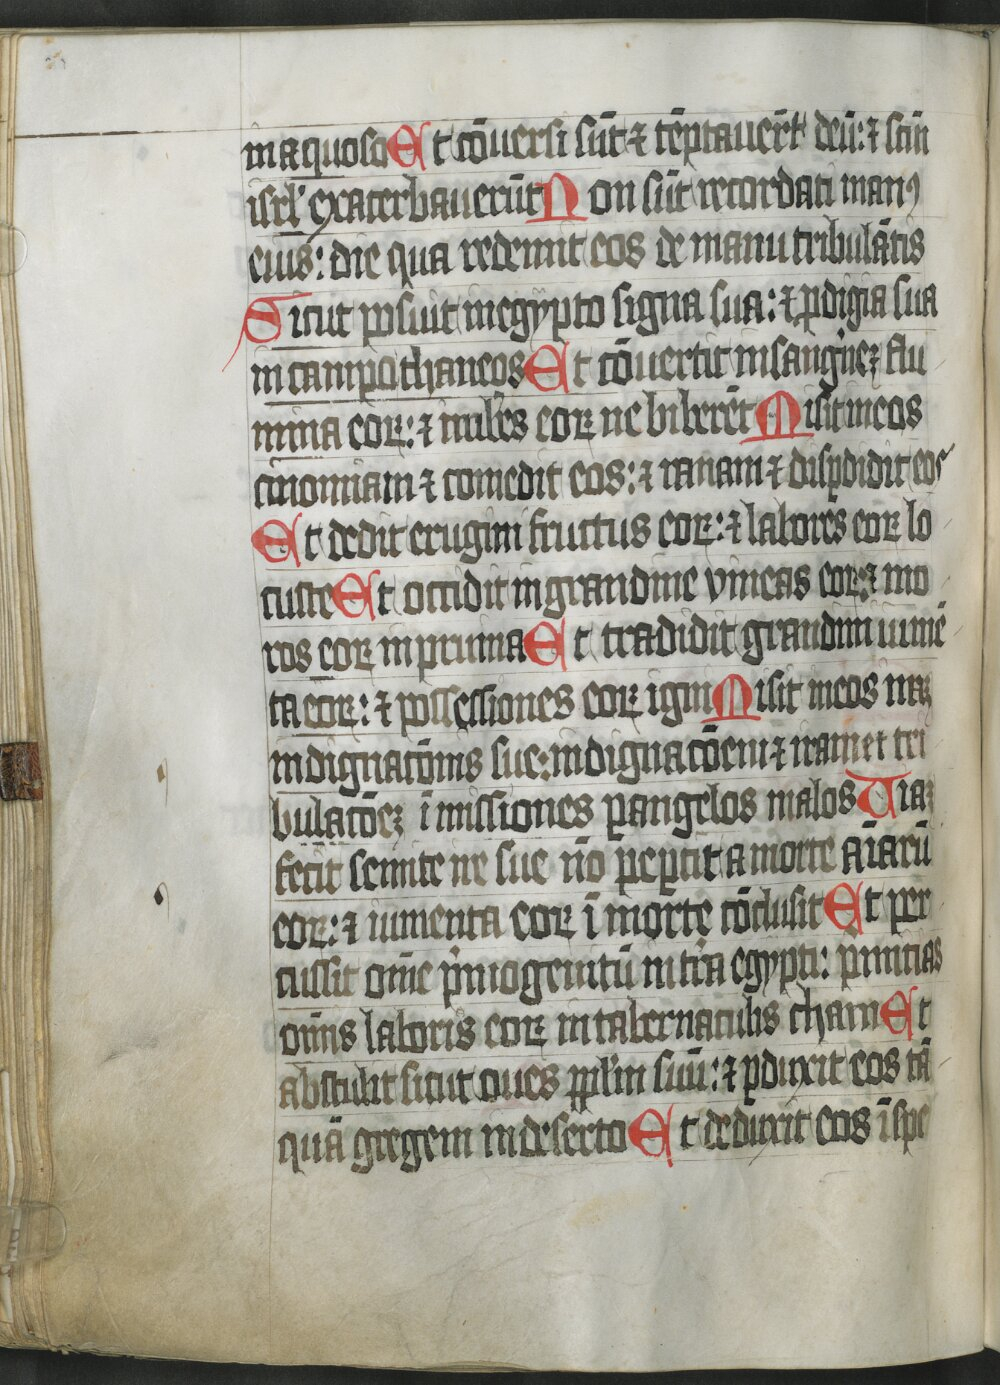 inaquoso Et cōuersi sūt ⁊ tēptauerūt deū: ⁊ scm̄
isrl' exacerbauerūt Non sūt recordati manꝰ
eius: die qua redemit eos de manu tribulātis
Sicut posuit in egypto signa sua: ⁊ ꝓdigia sua
in campo thaneos Et cōuertit in sanguineꝫ flu
mina eoꝝ: ⁊ imbres eoꝝ ne biberēt Misit in eos
cinomiam ⁊ comedit eos: ⁊ ranam ⁊ disꝑdidit eos
Et dedit erugini fructus eoꝝ: ⁊ labores eoꝝ lo
custe Et occidit in grandine vineas eoꝝ: ⁊ mo
ros eoꝝ in pruina Et tradidit grandini iumē
ta eoꝝ: ⁊ possessiones eoꝝ igni Misit in eos irā
indignacōnis sue: indignacōem ⁊ iram et tri
bulacōeꝫ īmissiones ꝑ angelos malos Uiaꝫ
fecit semite ire sue nō peꝑcit a morte aīarū
eoꝝ: ⁊ iumenta eoꝝ ī morte cōclusit Et per
cussit om̄e pͥmogenitū in tr̄a egypti: primicias
om̄is laboris eoꝝ in tabernaculis cham Et
abstulit sicut oues ppl'm suū: ⁊ ꝑduxit eos tā
quā gregem in deserto Et deduxit eos ī spe